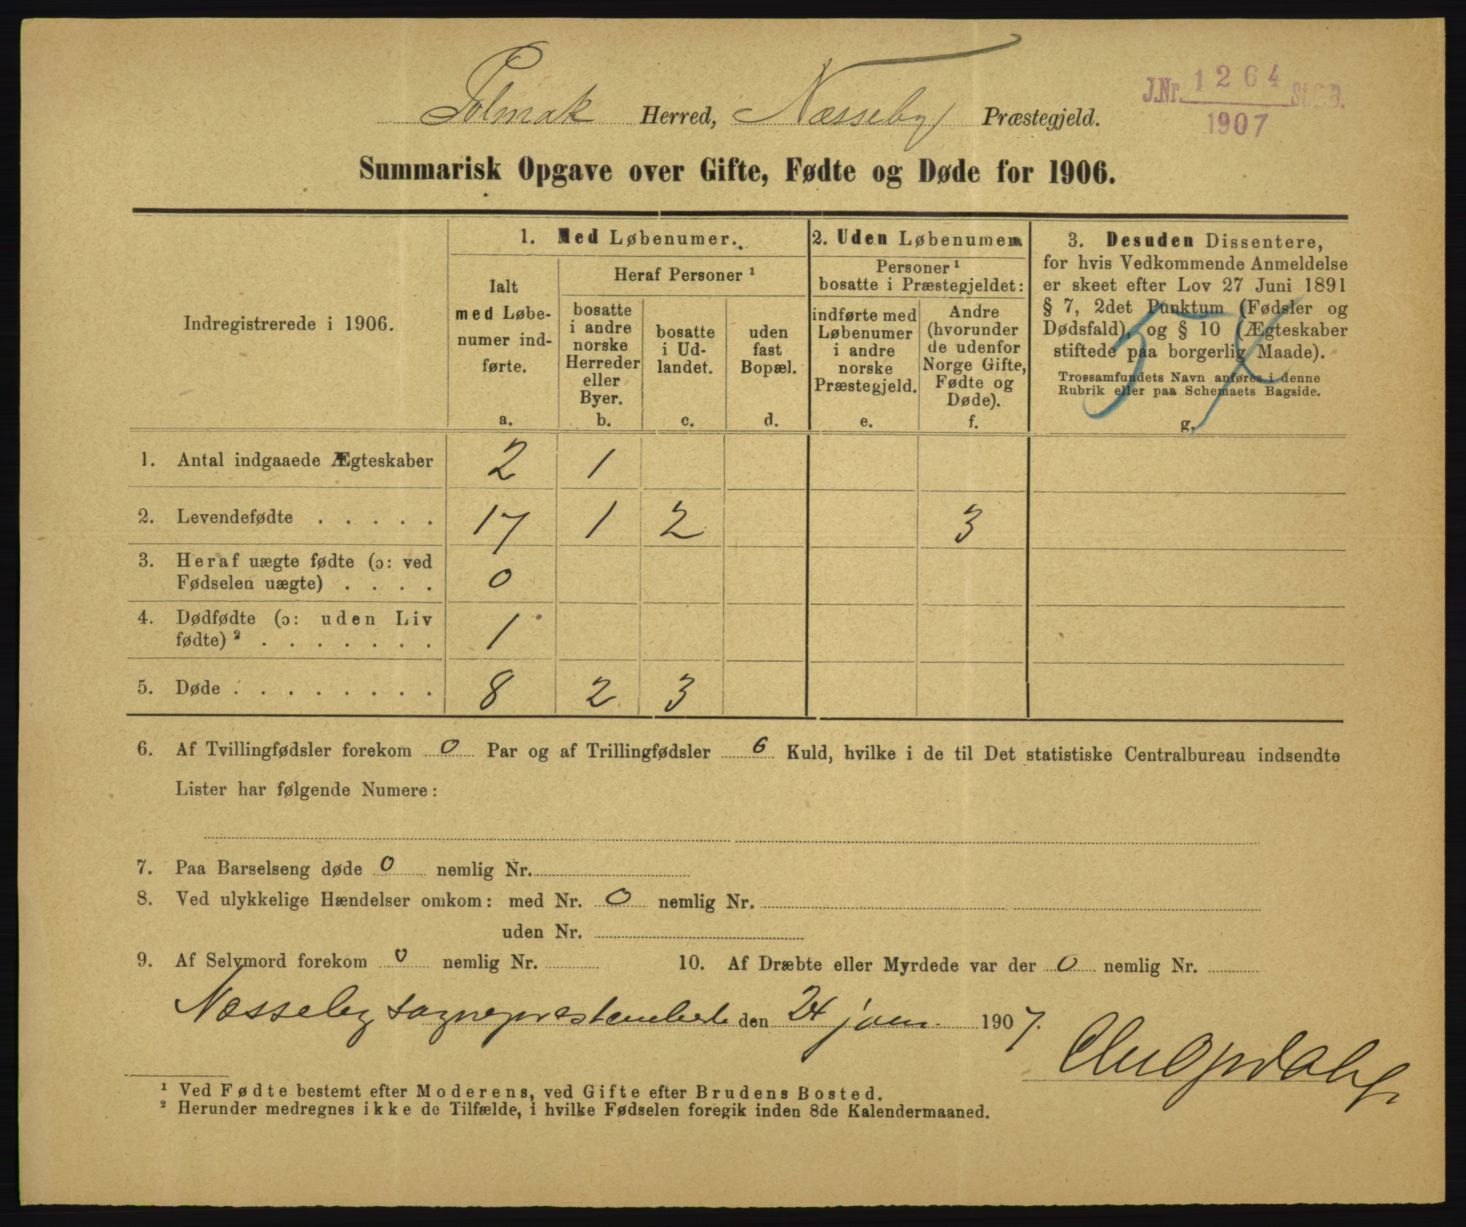 Polmak Herred, Næsseby Præstegjeld.
J.Nr. 1264 St.C.B.
1907
Summarisk Opgave over Gifte, Fødte og Døde for 1906.
Indregistrerede i 1906.
1. Med Løbenumer.
Ialt med Løbenumer indførte.
a.
Heraf Personer ¹
bosatte i andre norske Herreder eller Byer.
b.
bosatte i Udlandet.
c.
uden fast Bopæl.
d.
2. Uden Løbenumer
Personer ¹ bosatte i Præstegjeldet:
indførte med Løbenumer i andre norske Præstegjeld.
e.
Andre (hvorunder de udenfor Norge Gifte, Fødte og Døde).
f.
3. Desuden Dissentere,
for hvis Vedkommende Anmeldelse
er skeet efter Lov 27 Juni 1891
§ 7, 2det Punktum (Fødsler og
Dødsfald), og § 10 (Ægteskaber
stiftede paa borgerlig Maade).
Trossamfundets Navn anføres i denne
Rubrik eller paa Schemaets Bagside.
g.
1. Antal indgaaede Ægteskaber 2 1
2. Levendefødte . . . . . 17 1 2 3
3. Heraf uægte fødte (ɔ: ved
Fødselen uægte) . . . . 0
4. Dødfødte (ɔ: uden Liv
fødte) ² . . . . . . . 1
5. Døde . . . . . . . . . 8 2 3
6. Af Tvillingfødsler forekom 0 Par og af Trillingfødsler 0 Kuld, hvilke i de til Det statistiske Centralbureau indsendte
Lister har følgende Numere:
7. Paa Barselseng døde 0 nemlig Nr.
8. Ved ulykkelige Hændelser omkom: med Nr. 0 nemlig Nr.
uden Nr.
9. Af Selvmord forekom 0 nemlig Nr. 10. Af Dræbte eller Myrdede var der 0 nemlig Nr.
Næsseby sogneprestembede den 24 jan. 1907.
¹ Ved Fødte bestemt efter Moderens, ved Gifte efter Brudens Bosted.
² Herunder medregnes ikke de Tilfælde, i hvilke Fødselen foregik inden 8de Kalendermaaned.